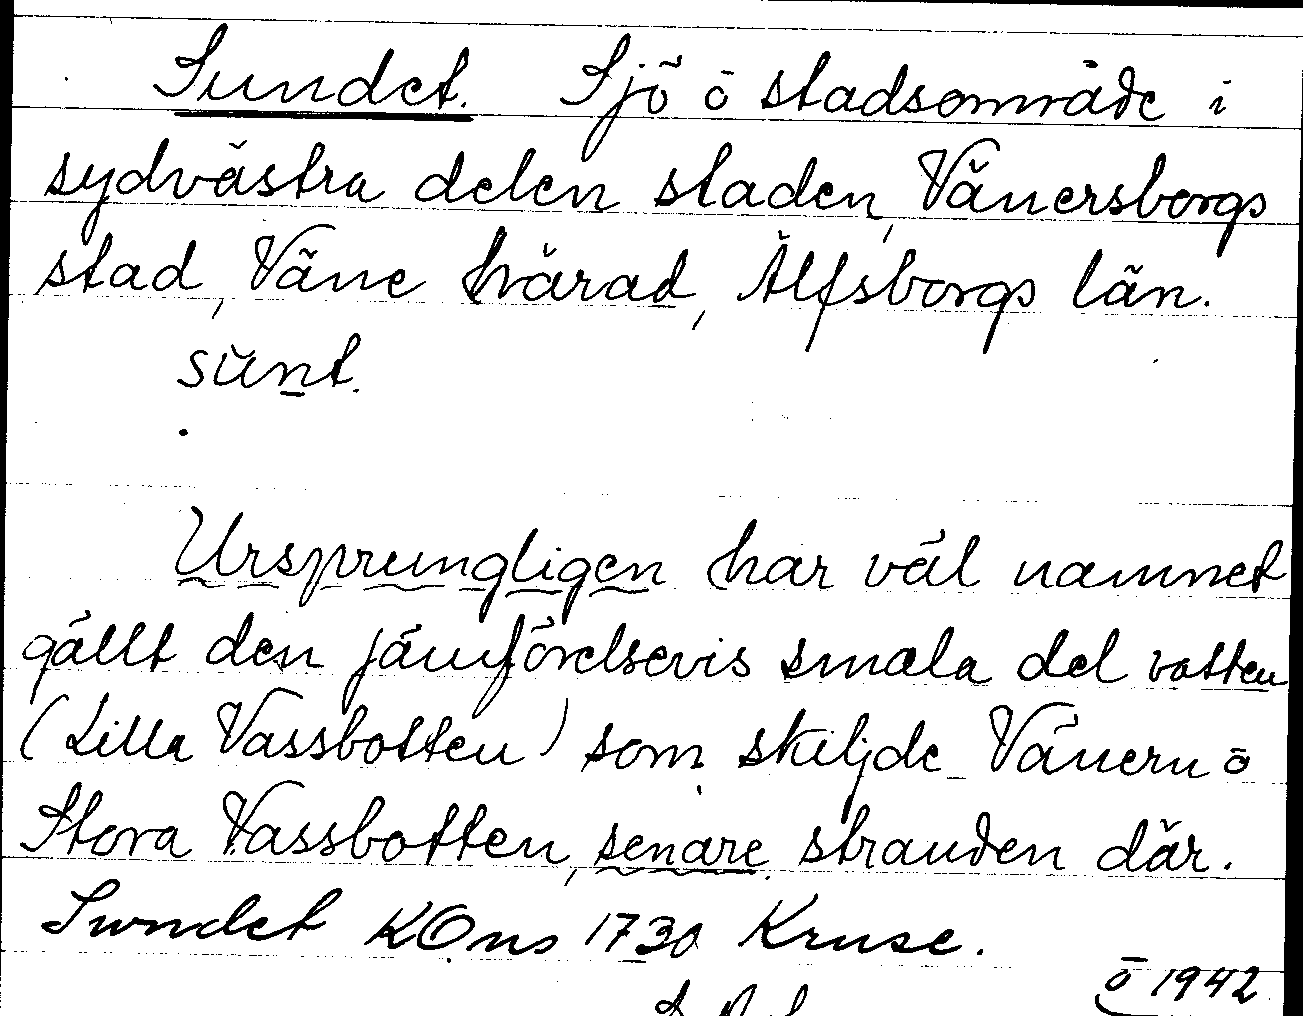 Sundet. Sjö ō stadsområde i
sydvästra delen staden, Vänersborgs
stad, Väne härad, Älfsborgs län.
sŭnt.
Ursprungligen har väl namnet
gällt den jämförelsevis smala del vatten
(Lilla Vassbotten) som skiljde Vänern ō
Stora Vassbotten, senare stranden där.
Sundet KOns 1730 Kruse.
ō 1942